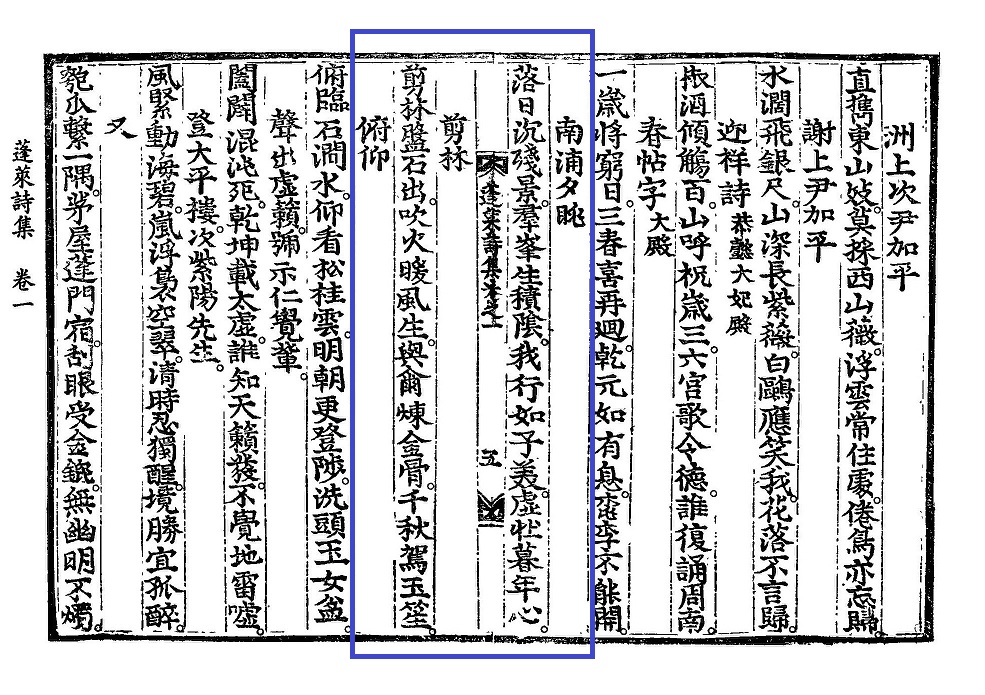 洲上次尹加平
直攜東山妓莫採西山薇浮雲常住處倦鳥亦忘歸
謝上尹加平
水濶飛銀尺山深長紫薇白鷗應笑我花落不言歸
迎祥詩恭懿大妃殿
椒酒傾觴百山呼祝歲三六宮歌令德誰復誦周南
春帖字大殿
一歲將窮日三春喜再廻乾元如有息
南浦夕眺
落日沉殘景羣峯生積陰我行如子美虛牝暮年心
蓬萊詩集卷之一
五
剪林
剪林盤石出吹火暖風生與爾煉金骨千秋駕玉笙
俯仰
俯臨石澗水仰看松桂雲明朝更登陟洗頭玉女盆
聲出虛籟號示仁覺輩
闔闢混沌死乾坤載太虛誰知天籟發不覺地雷噓
登大平樓次紫陽先生
風緊動海碧嵐浮裊空翠清時忍獨醒境勝宜孤醉
又
匏瓜繫一隅茅屋蓬門宿刮眼受金鎞無幽明不燭
蓬萊詩集 卷一